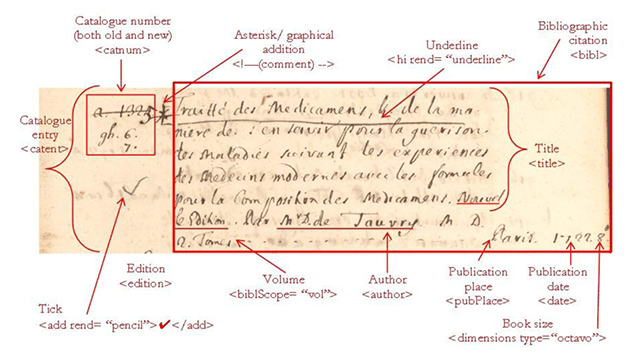 Catalogue number
(both old and new)
<catnum>
Asterisk/ graphical
addition
<!—(comment) -->
Underline
<hi rend= “underline”>
Bibliographic
citation
<bibl>
Catalogue
entry
<catent>
gh. 6.
7.
Traitté des Medicamens, & de la ma
niere de s'en servir pour la guerison
des maladies suivant les experiences
des Medecins modernes avec les formules
pour la Composition des Medicamens. Nouvel
le Edition. Par Mr. de Tauvry. M D.
2. Tomes. Paris.
Title
<title>
Edition
<edition>
Volume
<biblScope= “vol”>
Author
<author>
Publication
place
<pubPlace>
Publication
date
<date>
Tick
<add rend= “pencil”>✓</add>
Book size
<dimensions type=“octavo”>